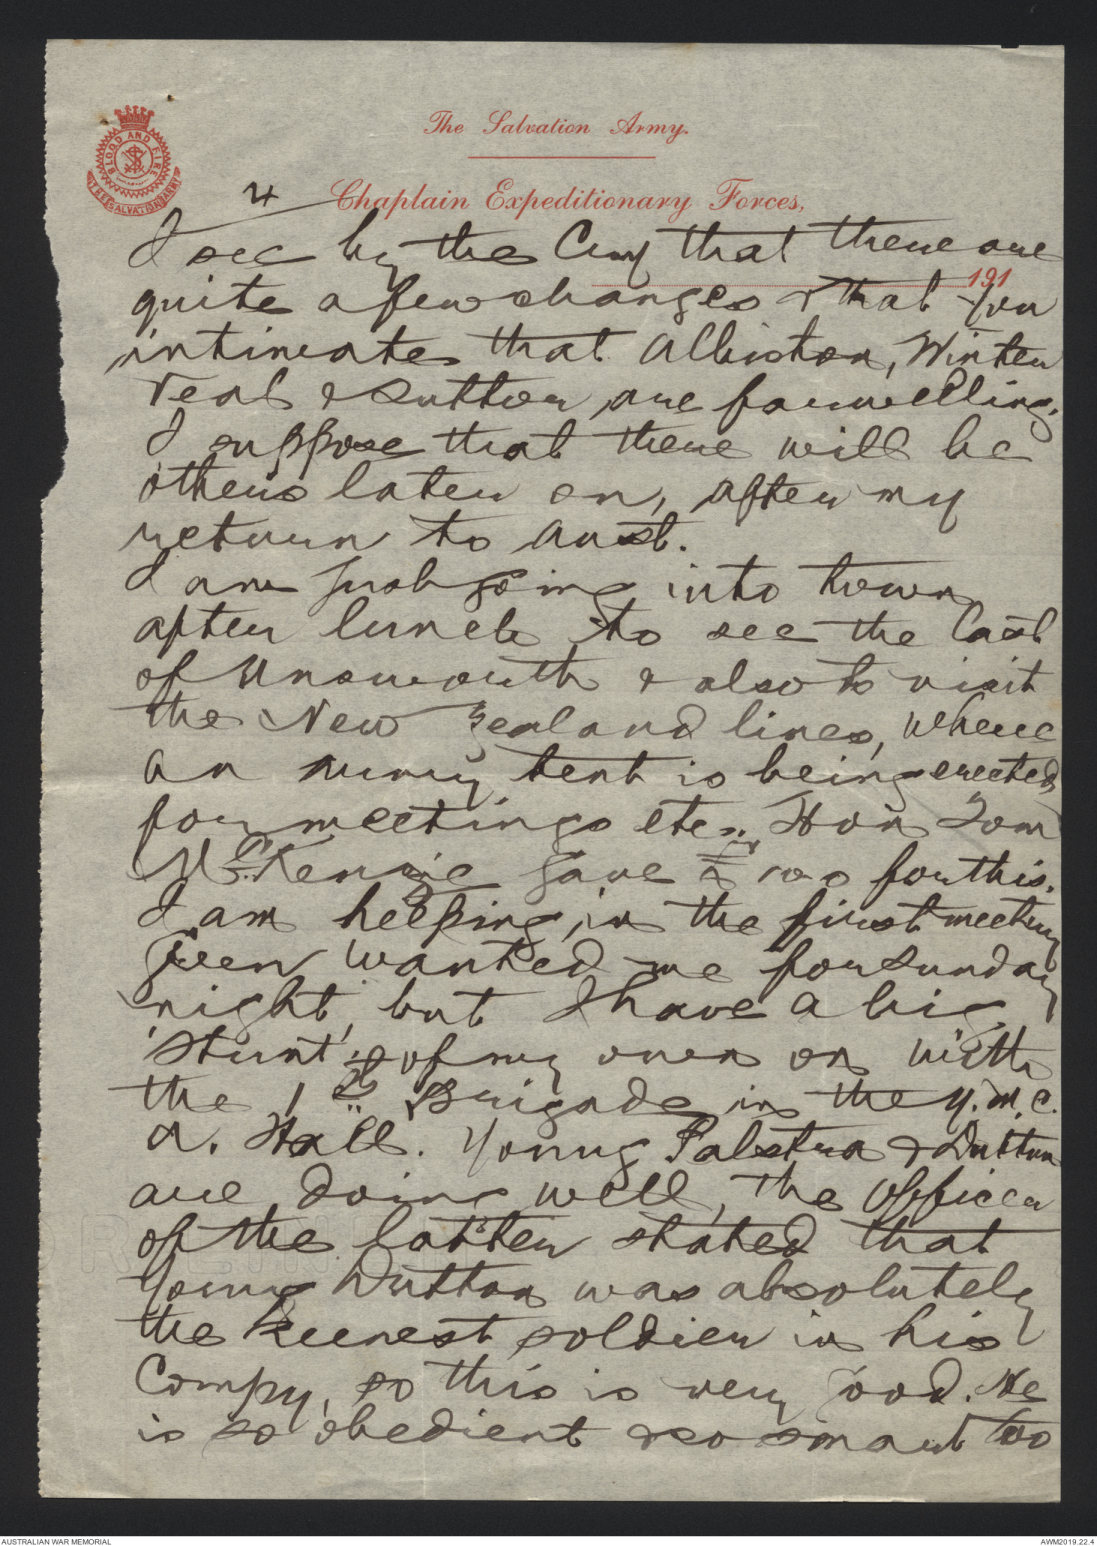 The Salvation Army.
BLOOD AND FIRE
THE SALVATION ARMY
4
Chaplain Expeditionary Forces,
191
I see by the Cry that there are
quite a few changes & that you
intimate that Albiston, Winter
Veal & Sutton are farewelling.
I suppose that there will be
others later on, after my
return to Aust.
I am just going into town
after lunch to see the last
of Unsworth & also to visit
the New Zealand lines, where
an army tent is being erected
for meetings etc. Hon Tom
McKenzie gave £100 for this.
I am helping in the first meeting
Green wanted me for Sunday
night, but I have a big
'stunt' of my own on with
the 1st Brigade in the Y.M.C.
A. Hall. Young Palstra & Dutton
are doing well, the Officer
of the latter stated that
young Dutton was absolutely
the keenest soldier in his
Compy, so this is very good. He
is so obedient & so smart too
AUSTRALIAN WAR MEMORIAL
AWM2019.22.4